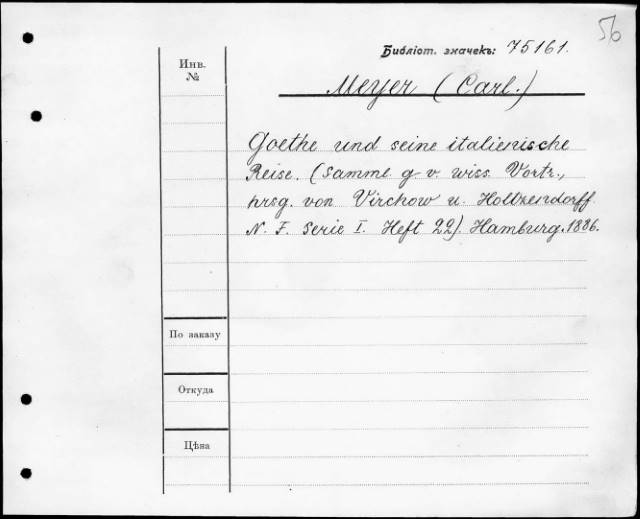 56
Библіот. значекъ: 75161.
Инв.
№
Meyer (Carl.)
Goethe und seine italienische
Reise. (Samml. g. v. wiss. Vortr.,
hrsg. von Virchow u. Holtzendorff
N. F. Serie I. Heft 22). Hamburg. 1886.
По заказу
Откуда
Цѣна